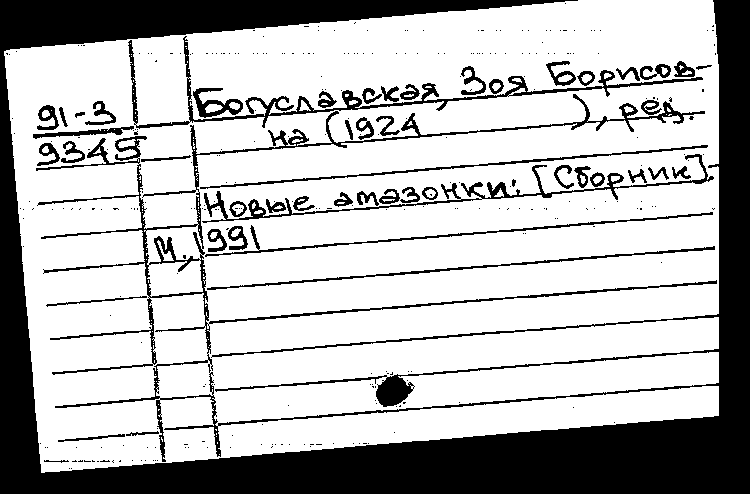 91-3
9345
Богуславская, Зоя Борисов-
на (1924 ), ред.
Новые амазонки: [Сборник].-
М., 1991